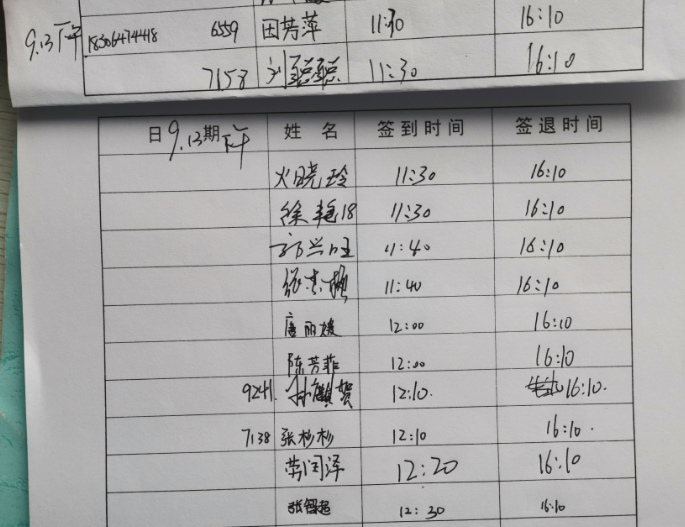 9.13下午 18306474418 6559 田芳萍 11:30 16:10
7158 刘聪聪 11:30 16:10
日 期 9.13 下午 姓 名 签到时间 签退时间
火晓玲 11:30 16:10
徐艳18 11:30 16:10
11:40 16:10
11:40 16:10
唐丽媛 12:00 16:10
陈芳菲 12:00 16:10
9241 孙 贺 12:10. 16:10.
7138 张杉杉 12:10 16:10.
劳闰泽 12:20 16:10
张智超 12:30 16:10